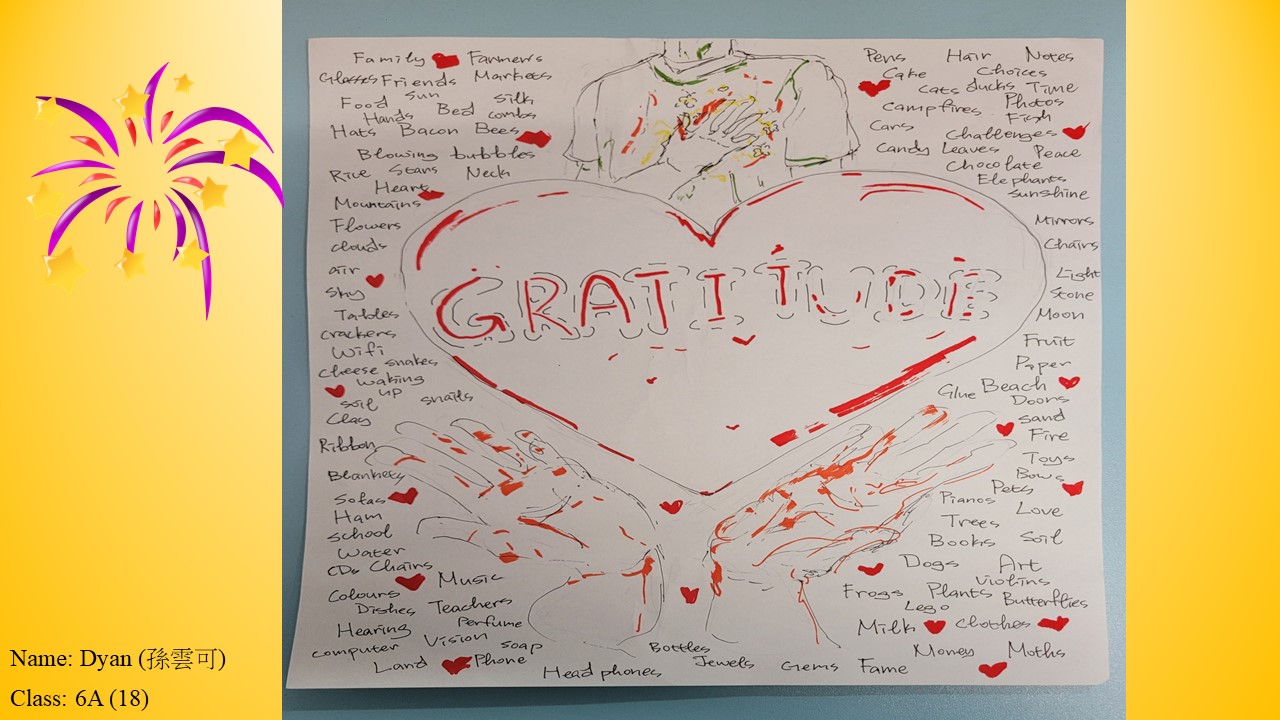 Family Farmers
Glasses Friends Markets
Food Sun Bed Silk
Hands combs
Hats Bacon Bees
Blowing bubbles
Rice Stars Neck
Heart
Mountains
Flowers
clouds
air
Sky
Tables
crackers
Wifi
cheese snakes
waking
up
soil snails
Clay
Ribbon
Blankets
Sofas
Ham
School
Water
CDs Chairs
Colours Music
Dishes Teachers
Hearing Perfume
computer Vision soap
Land Phone
Head phones
Bottles
Jewels Gems Fame
GRATITUDE
Pens Hair Notes
Cake Choices
Cats ducks Time
Campfires Photos
Fish
Cars Challenges
Candy Leaves Peace
Chocolate
Elephants
Sunshine
Mirrors
Chairs
Light
Stone
Moon
Fruit
Paper
Glue Beach
Doors
Sand
Fire
Toys
Bows
Pets
Pianos Love
Trees
Books Soil
Dogs Art
Violins
Frogs Plants Butterflies
Lego
Milk Clothes
Money Moths
Name: Dyan (孫雲可)
Class: 6A (18)